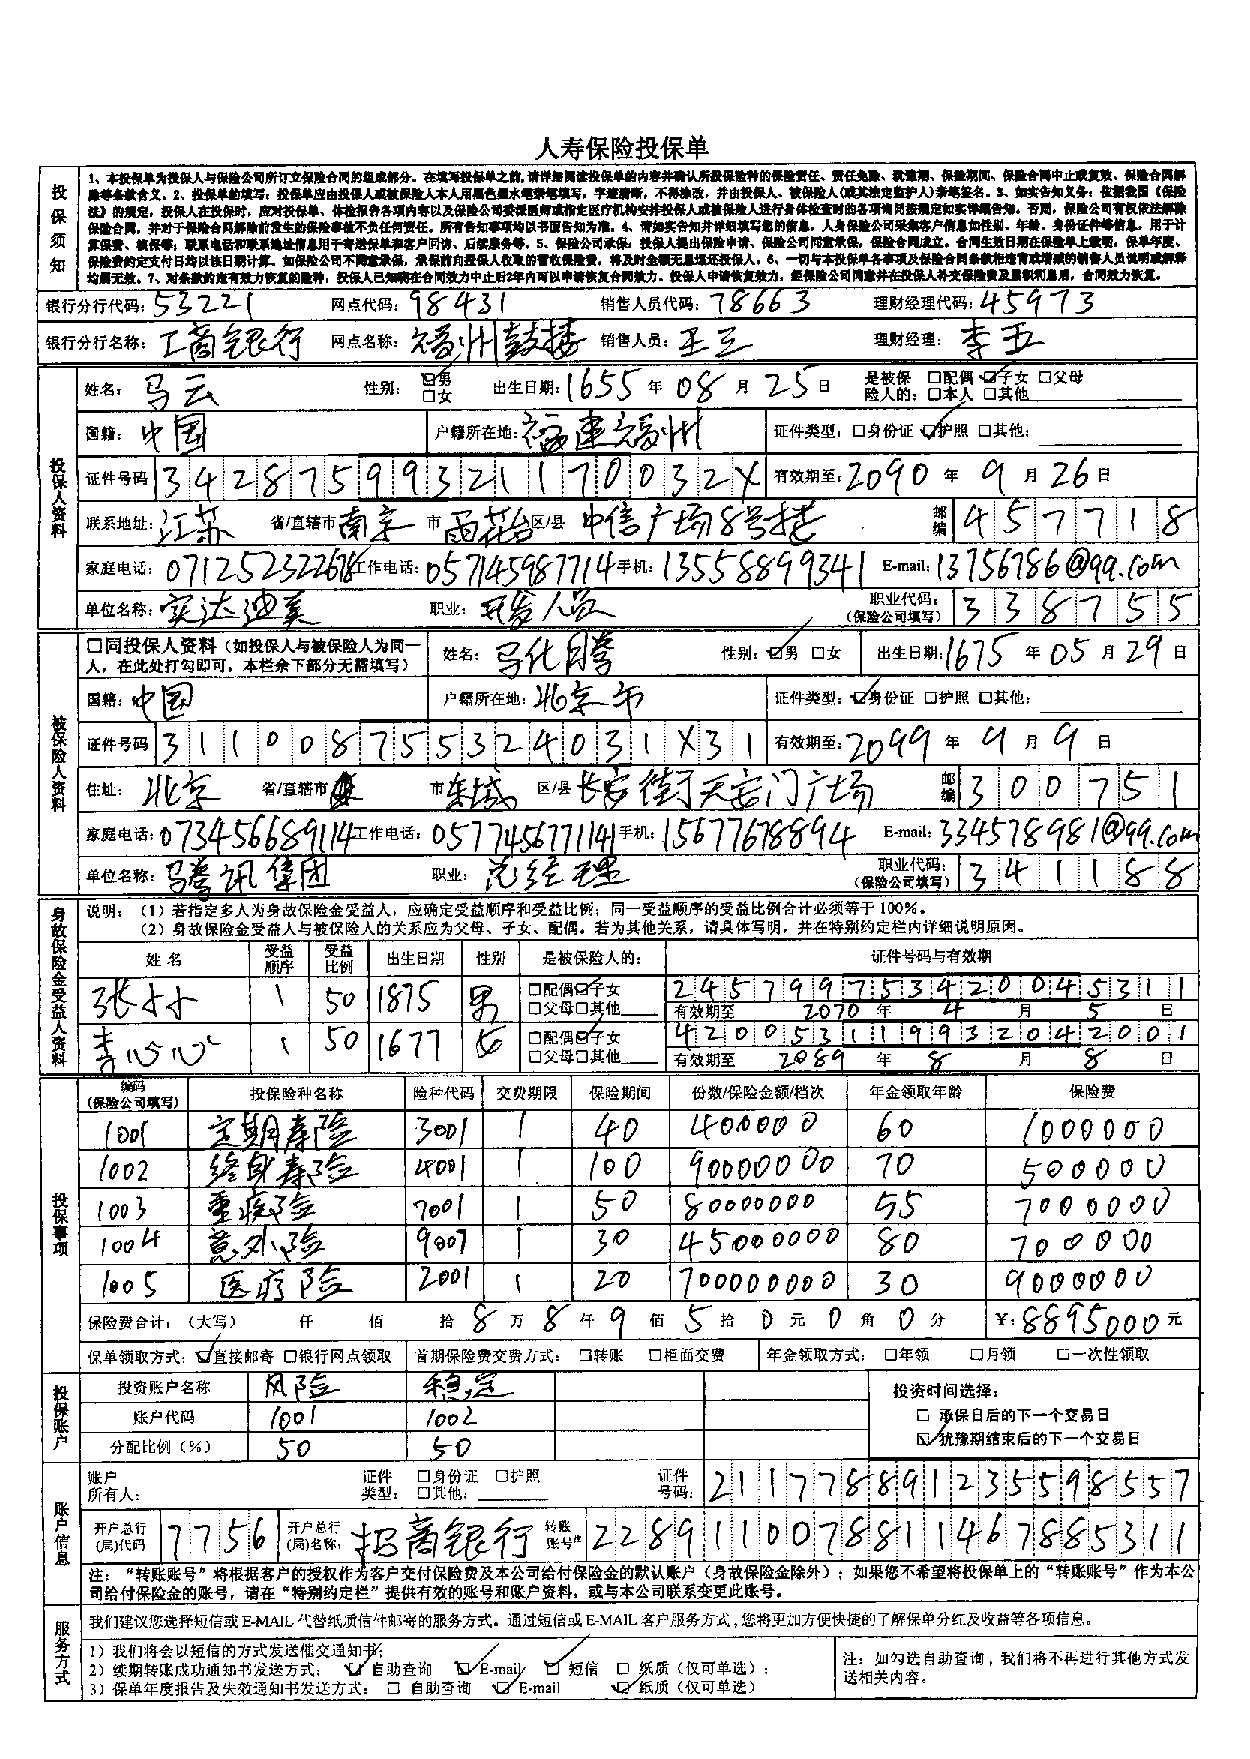 人寿保险投保单
投保须知
1、本投保单为投保人与保险公司所订立保险合同的组成部分。在填写投保单之前,请详细阅读投保单的内容并确认所投保险种的保险责任、责任免除、犹豫期、保险期间、保险合同中止或复效、保险合同解
除等条款含义。2、投保单的填写:投保单应由投保人或被保险人本人用黑色墨水笔亲笔填写,字迹清晰,不得涂改,并由投保人、被保险人(或其法定监护人)亲笔签名。3、如实告知义务:依据我国《保险
法》的规定,投保人在投保时,应对投保单、体检报告各项内容以及保险公司委派医师或指定医疗机构安排投保人或被保险人进行身体检查时的各项询问按规定如实详细告知。否则,保险公司有权依法解除
保险合同,并对于保险合同解除前发生的保险事故不负任何责任。所有告知事项均以书面告知为准。4、请如实告知并详细填写您的信息,人身保险公司采集客户信息如性别、年龄、身份证件等信息,用于计
算保费、核保等;联系电话和联系地址信息用于寄送保单和客户回访、后续服务等。5、保险公司承保:投保人提出保险申请、保险公司同意承保,保险合同成立。合同生效日期在保险单上载明,保单年度、
保险费约定支付日均以该日期计算。如保险公司不同意承保,承保前向投保人收取的暂收保险费,将及时全额无息退还投保人。6、一切与本投保单各事项及保险合同条款相违背或增减的销售人员说明或解释
均属无效。7、对条款约定有效力恢复的险种,投保人已知晓在合同效力中止后2年内可以申请恢复合同效力。投保人申请恢复效力,经保险公司同意并在投保人补交保险费及累积利息后,合同效力恢复。
银行分行代码:53221 网点代码:98431 销售人员代码:78663 理财经理代码:45973
银行分行名称:工商银行 网点名称:福州鼓楼 销售人员:王三 理财经理:李五
投保人资料
姓名:马云 性别:☑男 □女 出生日期:1655年08月25日 是被保险人的:□配偶☑子女□父母□本人□其他
国籍:中国 户籍所在地:福建福州 证件类型:□身份证☑护照□其他:
证件号码 34287599321170032X 有效期至:2090年9月26日
联系地址:江苏 省/直辖市 南京 市 雨花台 区/县 中信广场8号楼 邮编 457718
家庭电话:071252322678 工作电话:057145987714 手机:13558899341 E-mail:13756786@qq.com
单位名称:实达迪美 职业:开发人员 职业代码:(保险公司填写) 338755
被保险人资料
□同投保人资料(如投保人与被保险人为同一人,在此处打勾即可,本栏余下部分无需填写) 姓名:马化腾 性别:☑男□女 出生日期:1675年05月29日
国籍:中国 户籍所在地:北京市 证件类型:☑身份证□护照□其他:
证件号码 311008755324031X31 有效期至:2099年9月9日
住址:北京 省/直辖市 市 东城 区/县 长安街天安门广场 邮编 300751
家庭电话:073456689114 工作电话:0577456771141 手机:15677678894 E-mail:334578981@qq.com
单位名称:马腾讯集团 职业:总经理 职业代码:(保险公司填写) 341188
身故保险金受益人资料
说明:(1)若指定多人为身故保险金受益人,应确定受益顺序和受益比例;同一受益顺序的受益比例合计必须等于100%。
(2)身故保险金受益人与被保险人的关系应为父母、子女、配偶。若为其他关系,请具体写明,并在特别约定栏内详细说明原因。
姓名 受益顺序 受益比例 出生日期 性别 是被保险人的: 证件号码与有效期
张大大 1 50 1875 男 □配偶☑子女□父母□其他 245799753420045311
有效期至 2070年4月5日
李心心 1 50 1677 女 □配偶☑子女□父母□其他 420053119932042001
有效期至 2089年8月8日
投保事项
编码(保险公司填写) 投保险种名称 险种代码 交费期限 保险期间 份数/保险金额/档次 年金领取年龄 保险费
1001 定期寿险 3001 1 40 400000 60 1000000
1002 终身寿险 4001 1 100 90000000 70 500000
1003 重疾险 7001 1 50 80000000 55 7000000
1004 意外险 9007 1 30 45000000 80 700000
1005 医疗险 2001 1 20 700000000 30 9000000
保险费合计:(大写) 仟 佰 拾8万8仟9佰5拾0元0角0分 ¥:8895000元
保单领取方式:☑直接邮寄□银行网点领取 首期保险费交费方式:□转账□柜面交费 年金领取方式:□年领□月领□一次性领取
投保账户
投资账户名称 风险 稳定 投资时间选择:
账户代码 1001 1002 □承保日后的下一个交易日
分配比例(%) 50 50 ☑犹豫期结束后的下一个交易日
账户信息
账户所有人: 证件类型:□身份证□护照□其他: 证件号码:211778891235598557
开户总行(局)代码 7756 开户总行(局)名称:招商银行 转账账号 2289110078811467885311
注:“转账账号”将根据客户的授权作为客户交付保险费及本公司给付保险金的默认账户(身故保险金除外);如果您不希望将投保单上的“转账账号”作为本公
司给付保险金的账号,请在“特别约定栏”提供有效的账号和账户资料,或与本公司联系变更此账号。
服务方式
我们建议您选择短信或E-MAIL代替纸质信件邮寄的服务方式。通过短信或E-MAIL客户服务方式,您将更加方便快捷的了解保单分红及收益等各项信息。
1)我们将会以短信的方式发送催交通知书;
2)续期转账成功通知书发送方式:☑自助查询☑E-mail☑短信□纸质(仅可单选);
3)保单年度报告及失效通知书发送方式:□自助查询☑E-mail☑纸质(仅可单选)
注:如勾选自助查询,我们将不再进行其他方式发
送相关内容。